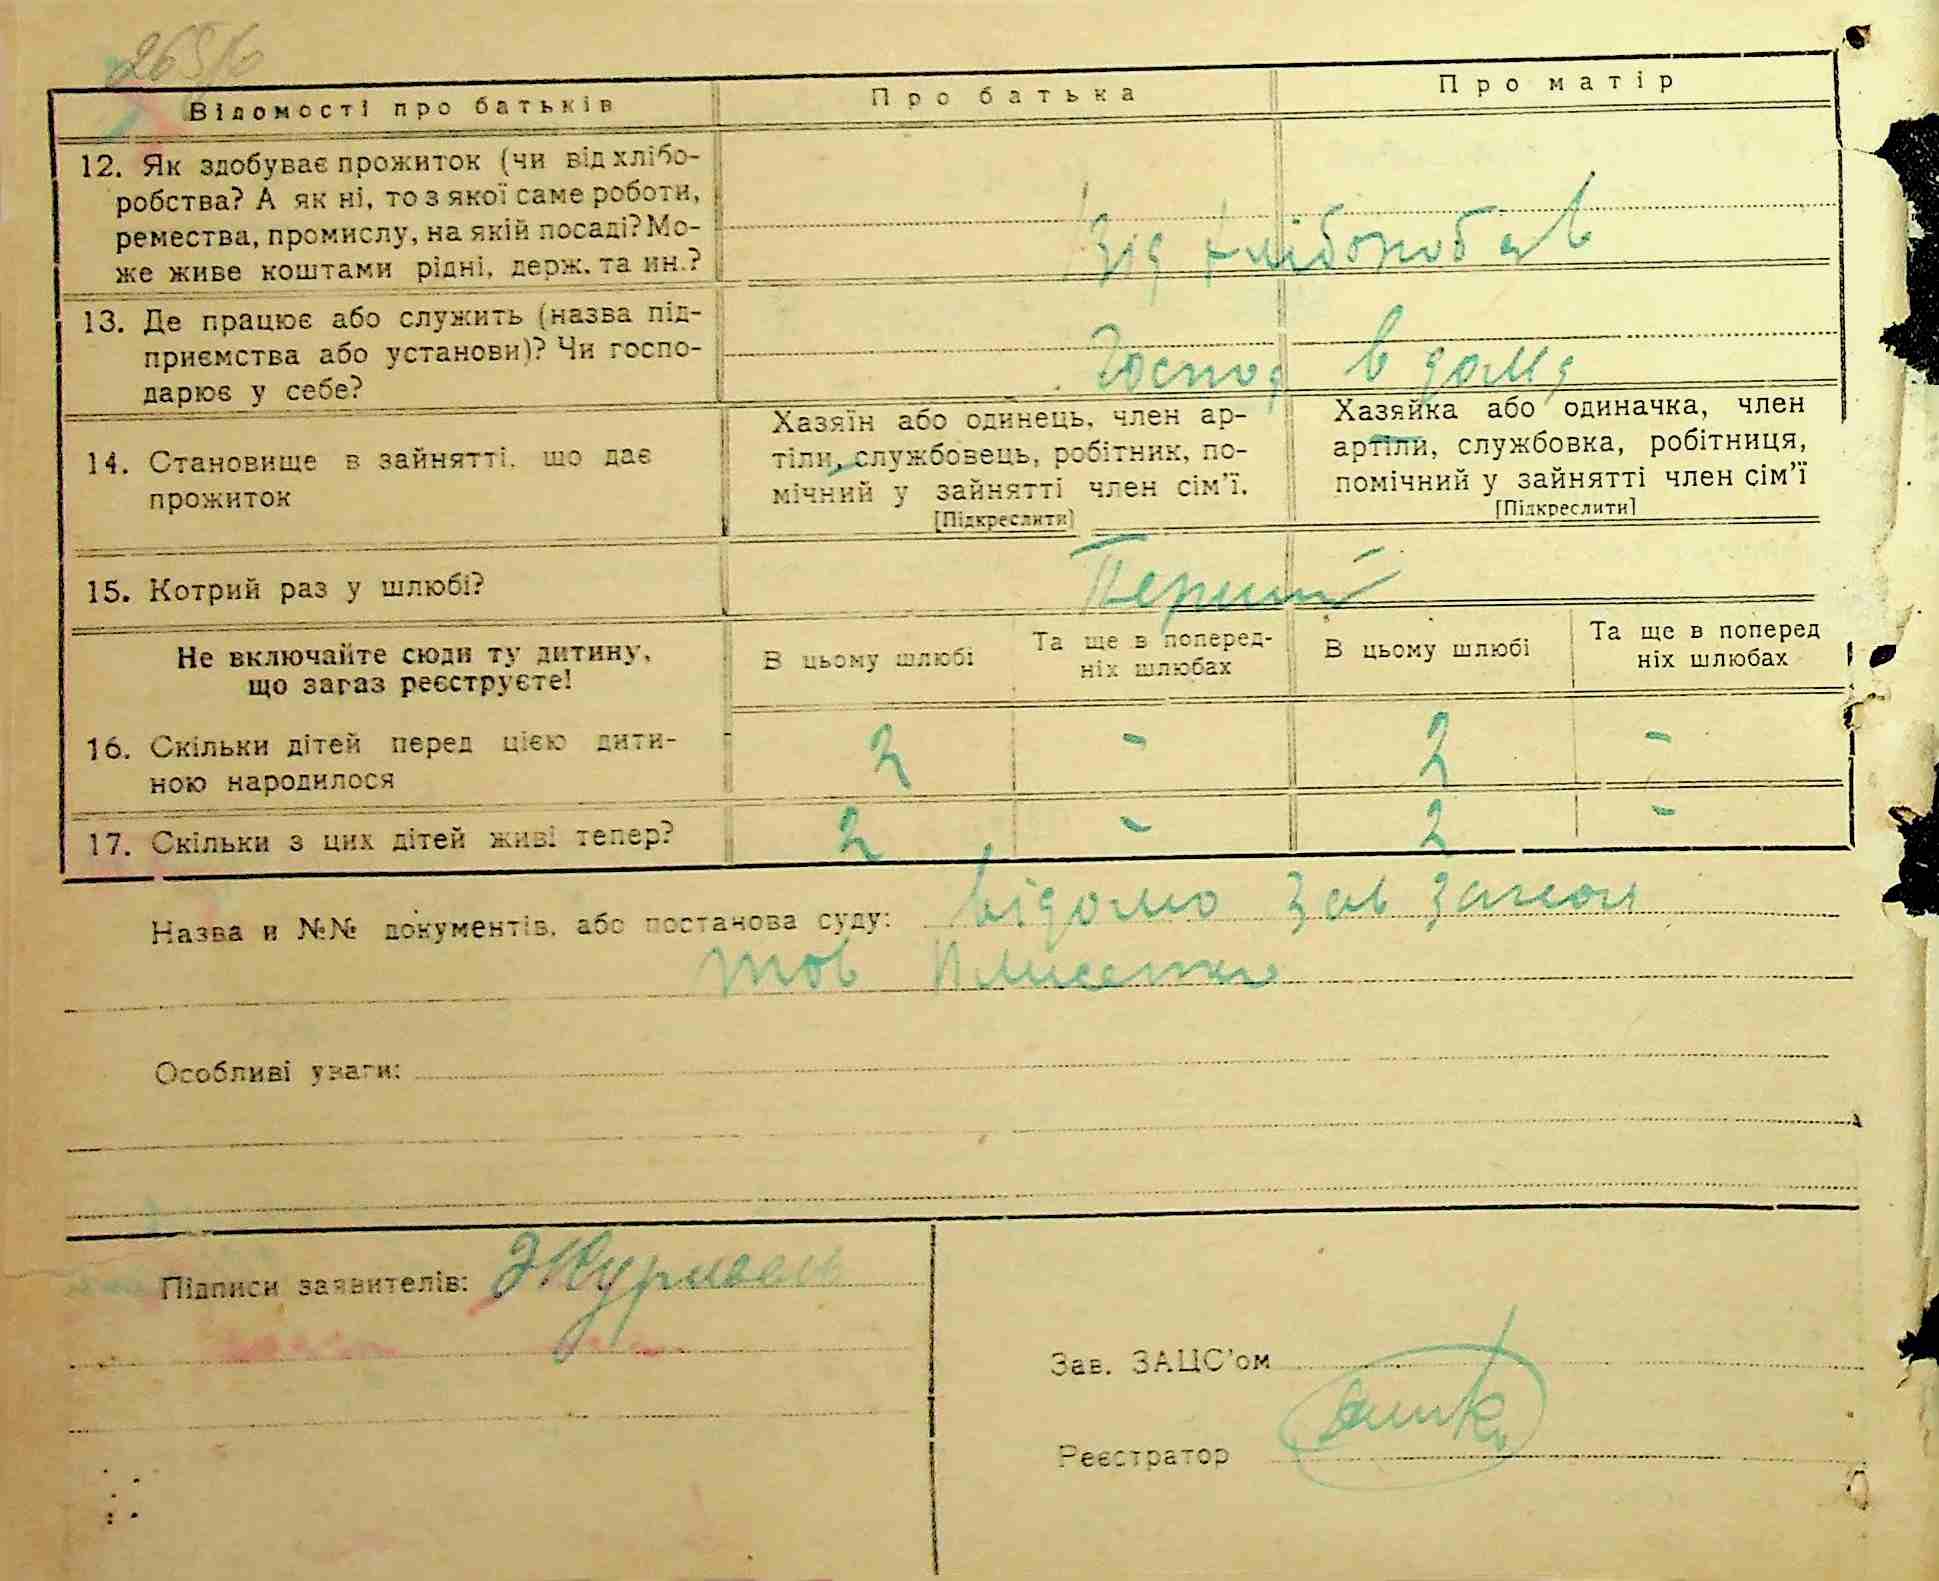 Відомості про батьків Про батька Про матір
12. Як здобуває прожиток (чи від хлібо-
робства? А як ні, то з якої саме роботи,
ремества, промислу, на якій посаді? Мо-
же живе коштами рідні, держ. та ин.?
Від
13. Де працює або служить (назва під-
приємства або установи)? Чи госпо-
дарює у себе?
Господ в дома
14. Становище в зайнятті, що дає
прожиток
Хазяїн або одинець, член ар-
тіли, службовець, робітник, по-
мічний у зайнятті член сім'ї.
[Підкреслити]
Хазяйка або одиначка, член
артіли, службовка, робітниця,
помічний у зайнятті член сім'ї
[Підкреслити]
15. Котрий раз у шлюбі? Перший
Не включайте сюди ту дитину,
що зараз реєструєте!
В цьому шлюбі
Та ще в поперед-
ніх шлюбах
В цьому шлюбі
Та ще в поперед
ніх шлюбах
16. Скільки дітей перед цією дити-
ною народилося
2 - 2 -
17. Скільки з цих дітей живі тепер? 2 - 2 -
Назва и №№ документів, або постанова суду: відомо Зав
тов
Особливі уваги:
Підписи заявителів:
Зав. ЗАЦС'ом
Реєстратор